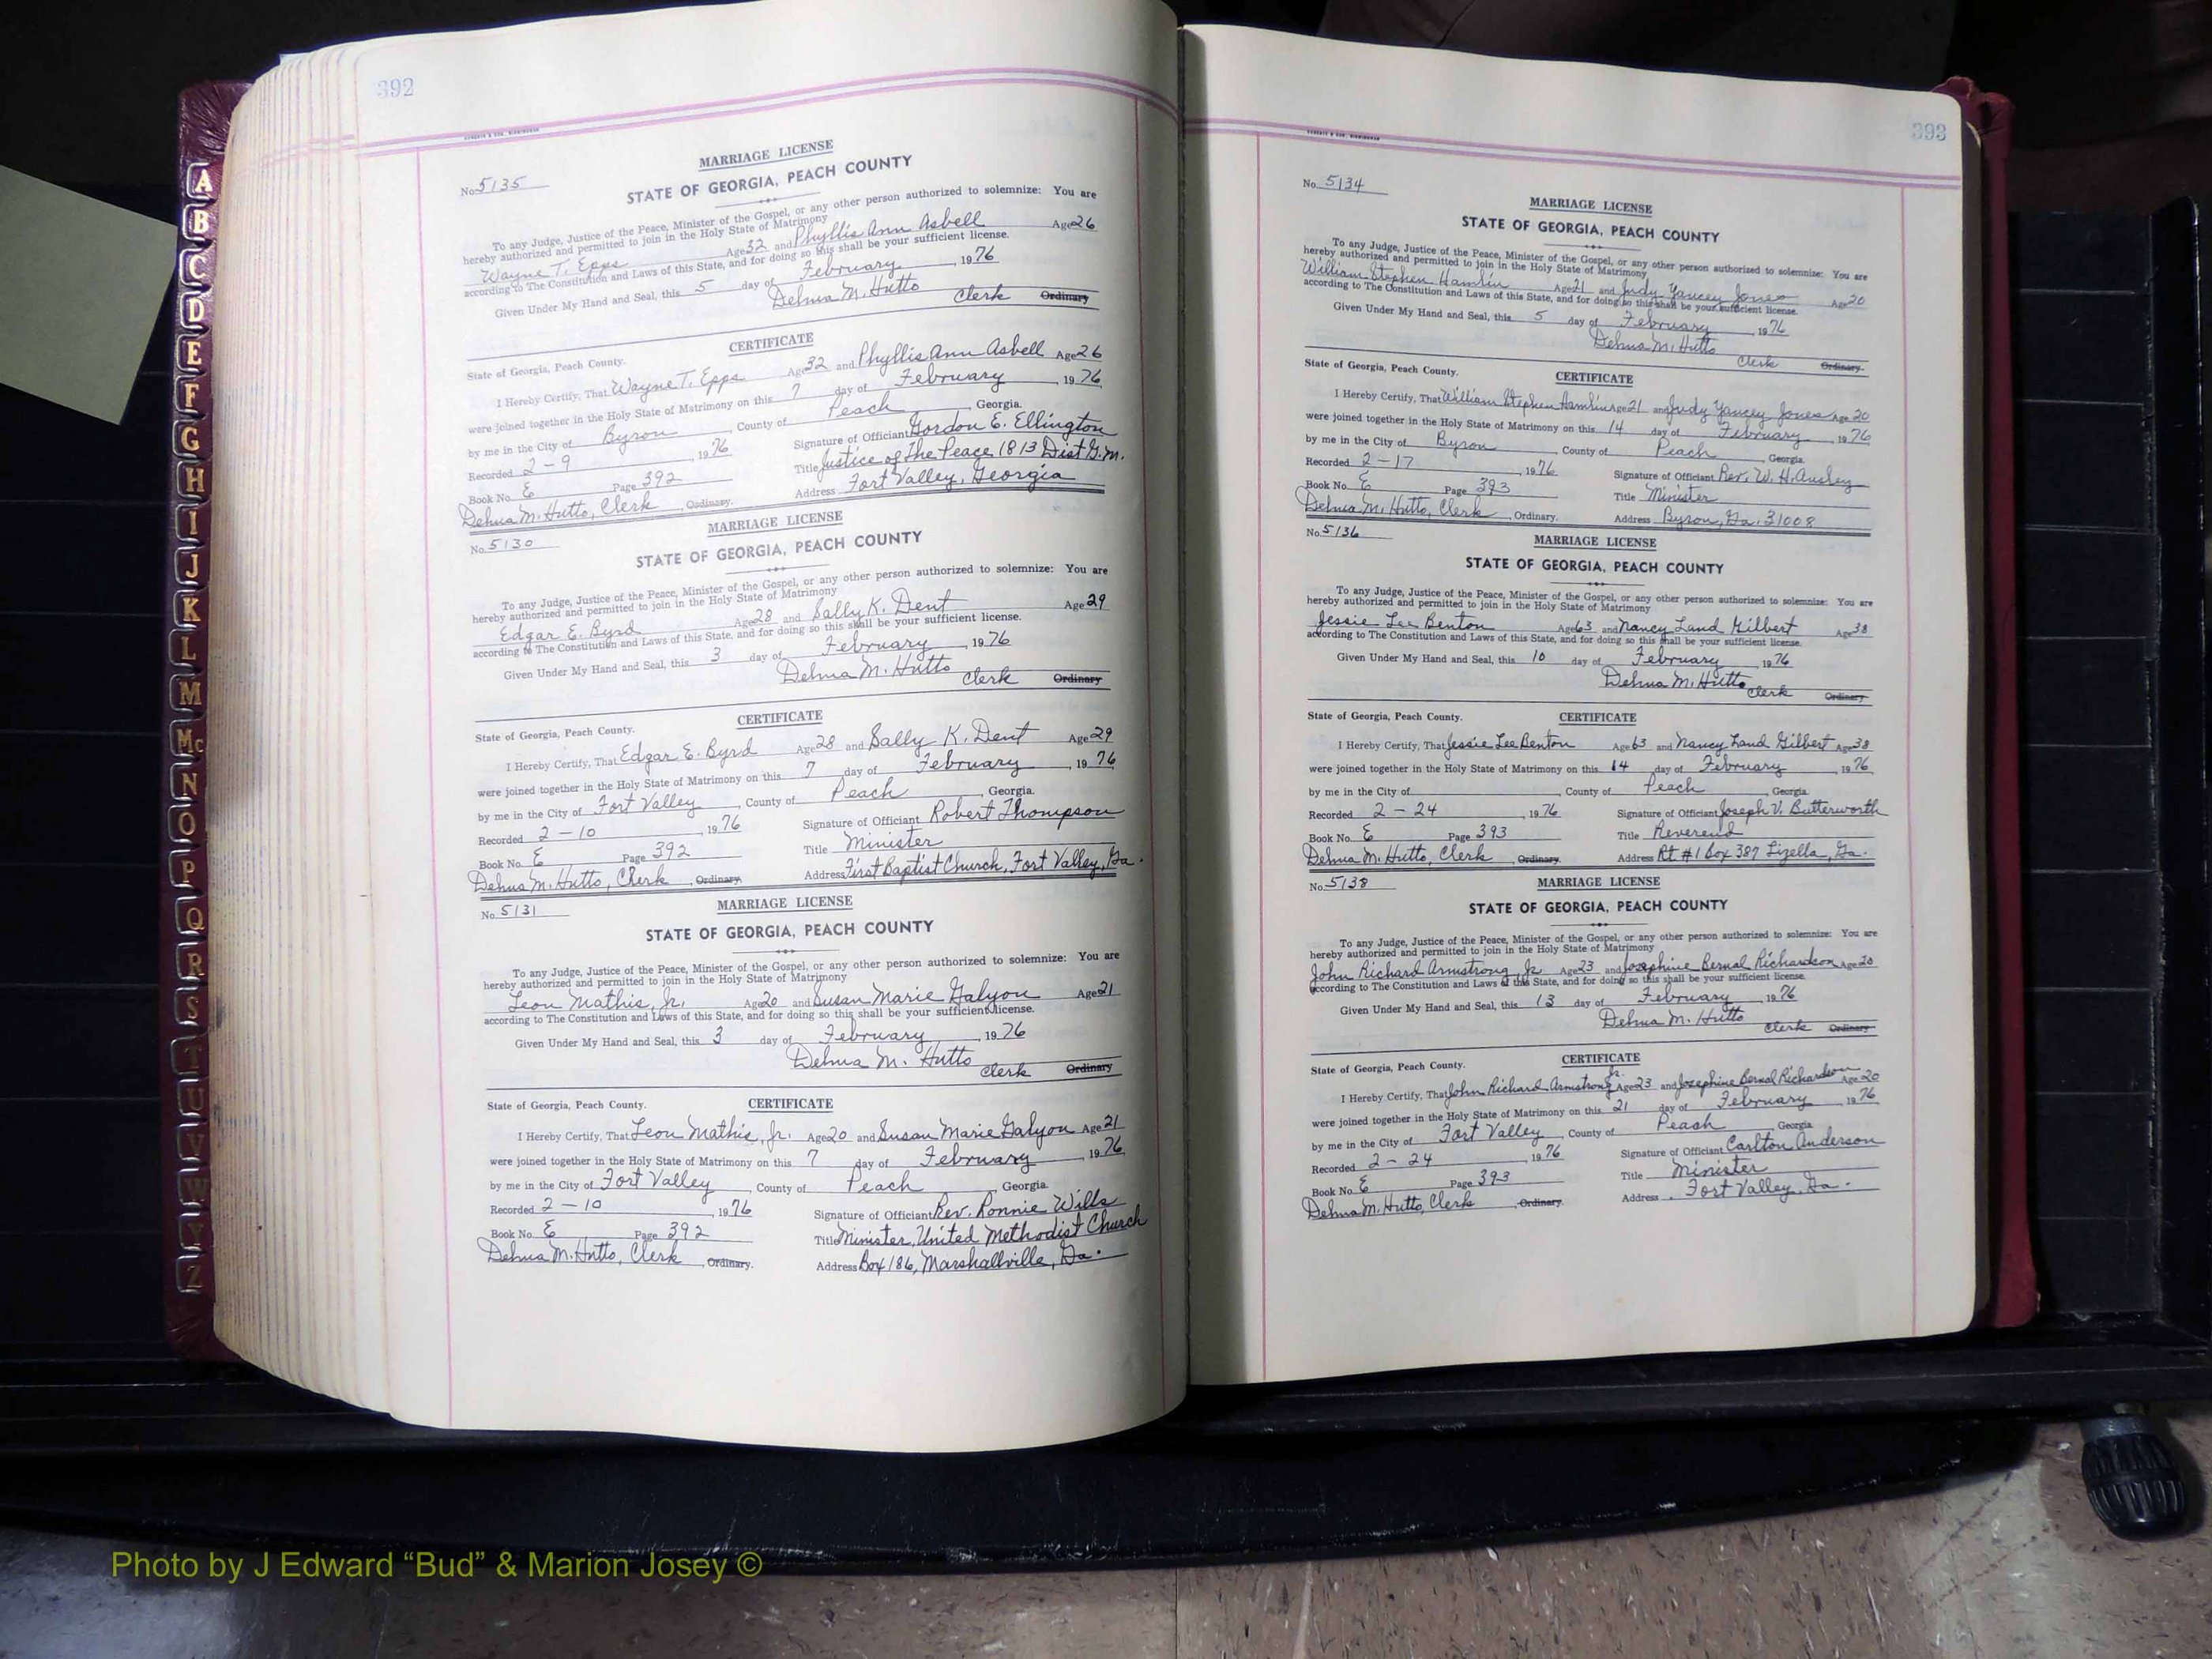 392
MARRIAGE LICENSE
No. 5135
STATE OF GEORGIA, PEACH COUNTY
To any Judge, Justice of the Peace, Minister of the Gospel, or any other person authorized to solemnize: You are
hereby authorized and permitted to join in the Holy State of Matrimony
Wayne T. Epps Age 32 and Phyllis Ann Asbell Age 26
according to The Constitution and Laws of this State, and for doing so this shall be your sufficient license.
Given Under My Hand and Seal, this 5 day of February, 1976
Delma M. Hutto Clerk Ordinary
CERTIFICATE
State of Georgia, Peach County.
I Hereby Certify, That Wayne T. Epps Age 32 and Phyllis Ann Asbell Age 26
were joined together in the Holy State of Matrimony on this 7 day of February, 1976
by me in the City of Byron, County of Peach, Georgia.
Recorded 2-9, 1976 Signature of Officiant Gordon E. Ellington
Book No. E Page 392 Title Justice of the Peace 1813 Dist G.M.
Delma M. Hutto, Clerk, Ordinary. Address Fort Valley, Georgia
MARRIAGE LICENSE
No. 5130
STATE OF GEORGIA, PEACH COUNTY
To any Judge, Justice of the Peace, Minister of the Gospel, or any other person authorized to solemnize: You are
hereby authorized and permitted to join in the Holy State of Matrimony
Edgar E. Byrd Age 28 and Sally K. Dent Age 29
according to The Constitution and Laws of this State, and for doing so this shall be your sufficient license.
Given Under My Hand and Seal, this 3 day of February, 1976
Delma M. Hutto Clerk Ordinary
CERTIFICATE
State of Georgia, Peach County.
I Hereby Certify, That Edgar E. Byrd Age 28 and Sally K. Dent Age 29
were joined together in the Holy State of Matrimony on this 7 day of February, 1976
by me in the City of Fort Valley, County of Peach, Georgia.
Recorded 2-10, 1976 Signature of Officiant Robert Thompson
Book No. E Page 392 Title Minister
Delma M. Hutto, Clerk, Ordinary. Address First Baptist Church, Fort Valley, Ga.
MARRIAGE LICENSE
No. 5131
STATE OF GEORGIA, PEACH COUNTY
To any Judge, Justice of the Peace, Minister of the Gospel, or any other person authorized to solemnize: You are
hereby authorized and permitted to join in the Holy State of Matrimony
Leon Mathis, Jr. Age 20 and Susan Marie Galyon Age 21
according to The Constitution and Laws of this State, and for doing so this shall be your sufficient license.
Given Under My Hand and Seal, this 3 day of February, 1976
Delma M. Hutto Clerk Ordinary
State of Georgia, Peach County. CERTIFICATE
I Hereby Certify, That Leon Mathis, Jr. Age 20 and Susan Marie Galyon Age 21
were joined together in the Holy State of Matrimony on this 7 day of February, 1976
by me in the City of Fort Valley, County of Peach, Georgia.
Recorded 2-10, 1976 Signature of Officiant Rev. Ronnie Wills
Book No. E Page 392 Title Minister, United Methodist Church
Delma M. Hutto, Clerk, Ordinary. Address Box 186, Marshallville, Ga.
393
No. 5134
MARRIAGE LICENSE
STATE OF GEORGIA, PEACH COUNTY
To any Judge, Justice of the Peace, Minister of the Gospel, or any other person authorized to solemnize: You are
hereby authorized and permitted to join in the Holy State of Matrimony
William Stephen Hamlin Age 21 and Judy Yancey Jones Age 20
according to The Constitution and Laws of this State, and for doing so this shall be your sufficient license.
Given Under My Hand and Seal, this 5 day of February, 1976
Delma M. Hutto Clerk Ordinary
State of Georgia, Peach County. CERTIFICATE
I Hereby Certify, That William Stephen Hamlin Age 21 and Judy Yancey Jones Age 20
were joined together in the Holy State of Matrimony on this 14 day of February, 1976
by me in the City of Byron, County of Peach, Georgia
Recorded 2-17, 1976 Signature of Officiant Rev. W. H. Ausley
Book No. E Page 393 Title Minister
Delma M. Hutto, Clerk, Ordinary. Address Byron, Ga. 31008
No. 5136
MARRIAGE LICENSE
STATE OF GEORGIA, PEACH COUNTY
To any Judge, Justice of the Peace, Minister of the Gospel, or any other person authorized to solemnize: You are
hereby authorized and permitted to join in the Holy State of Matrimony
Jessie Lee Benton Age 63 and Nancy Land Gilbert Age 38
according to The Constitution and Laws of this State, and for doing so this shall be your sufficient license.
Given Under My Hand and Seal, this 10 day of February, 1976
Delma M. Hutto Clerk Ordinary
State of Georgia, Peach County. CERTIFICATE
I Hereby Certify, That Jessie Lee Benton Age 63 and Nancy Land Gilbert Age 38
were joined together in the Holy State of Matrimony on this 14 day of February, 1976
by me in the City of , County of Peach, Georgia
Recorded 2-24, 1976 Signature of Officiant Joseph V. Butterworth
Book No. E Page 393 Title Reverend
Delma M. Hutto, Clerk, Ordinary. Address Rt #1 Box 387 Lizella, Ga.
No. 5138
MARRIAGE LICENSE
STATE OF GEORGIA, PEACH COUNTY
To any Judge, Justice of the Peace, Minister of the Gospel, or any other person authorized to solemnize: You are
hereby authorized and permitted to join in the Holy State of Matrimony
John Richard Armstrong Jr. Age 23 and Josephine Bernal Richardson Age 20
according to The Constitution and Laws of this State, and for doing so this shall be your sufficient license.
Given Under My Hand and Seal, this 13 day of February, 1976
Delma M. Hutto Clerk Ordinary
State of Georgia, Peach County. CERTIFICATE
I Hereby Certify, That John Richard Armstrong Jr. Age 23 and Josephine Bernal Richardson Age 20
were joined together in the Holy State of Matrimony on this 21 day of February, 1976
by me in the City of Fort Valley, County of Peach, Georgia
Recorded 2-24, 1976 Signature of Officiant Carlton Anderson
Book No. E Page 393 Title Minister
Delma M. Hutto, Clerk, Ordinary. Address Fort Valley, Ga.
A
B
C
D
E
F
G
H
I
J
K
L
M
Mc
N
O
P
Q
R
S
T
U
V
W
Y
Z
Photo by J Edward “Bud” & Marion Josey ©